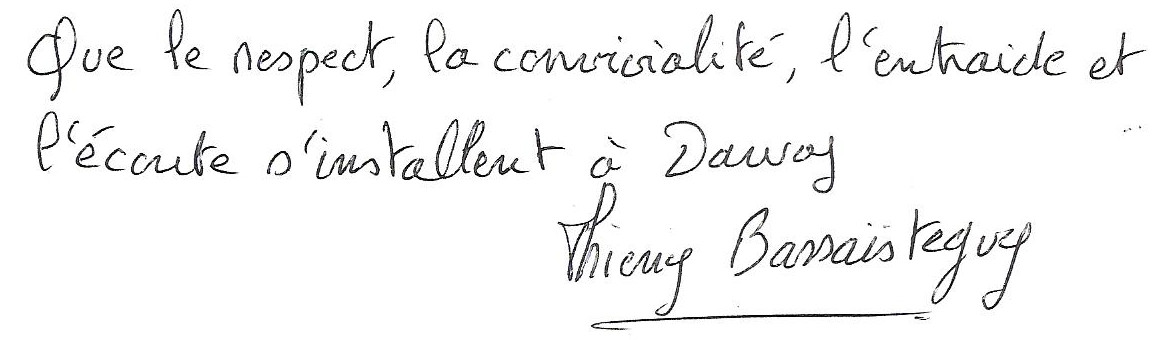 Que le respect, la convivialité, l'entraide et
l'écoute s'installent à Dawoy
Thierry Bassaisteguy